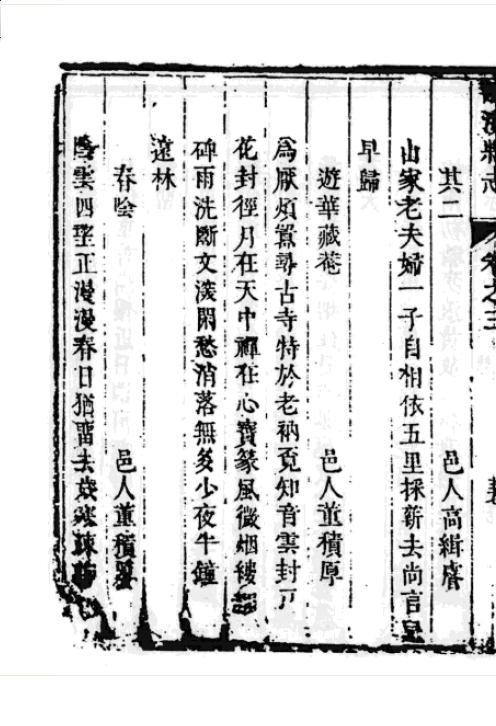 卷之三
其二 邑人高緝睿
山家老夫婦一子自相依五里採薪去尚言是
早歸
遊華藏菴 邑人董積厚
為厭煩囂尋古寺特於老衲覓知音雲封戸
花封徑月在天中禪在心寶篆風微烟縷
碑雨洗斷文淺閑愁消落無多少夜半鐘
遠林
春陰 邑人董積
陰雲四望正漫漫春日猶留去歲寒疎